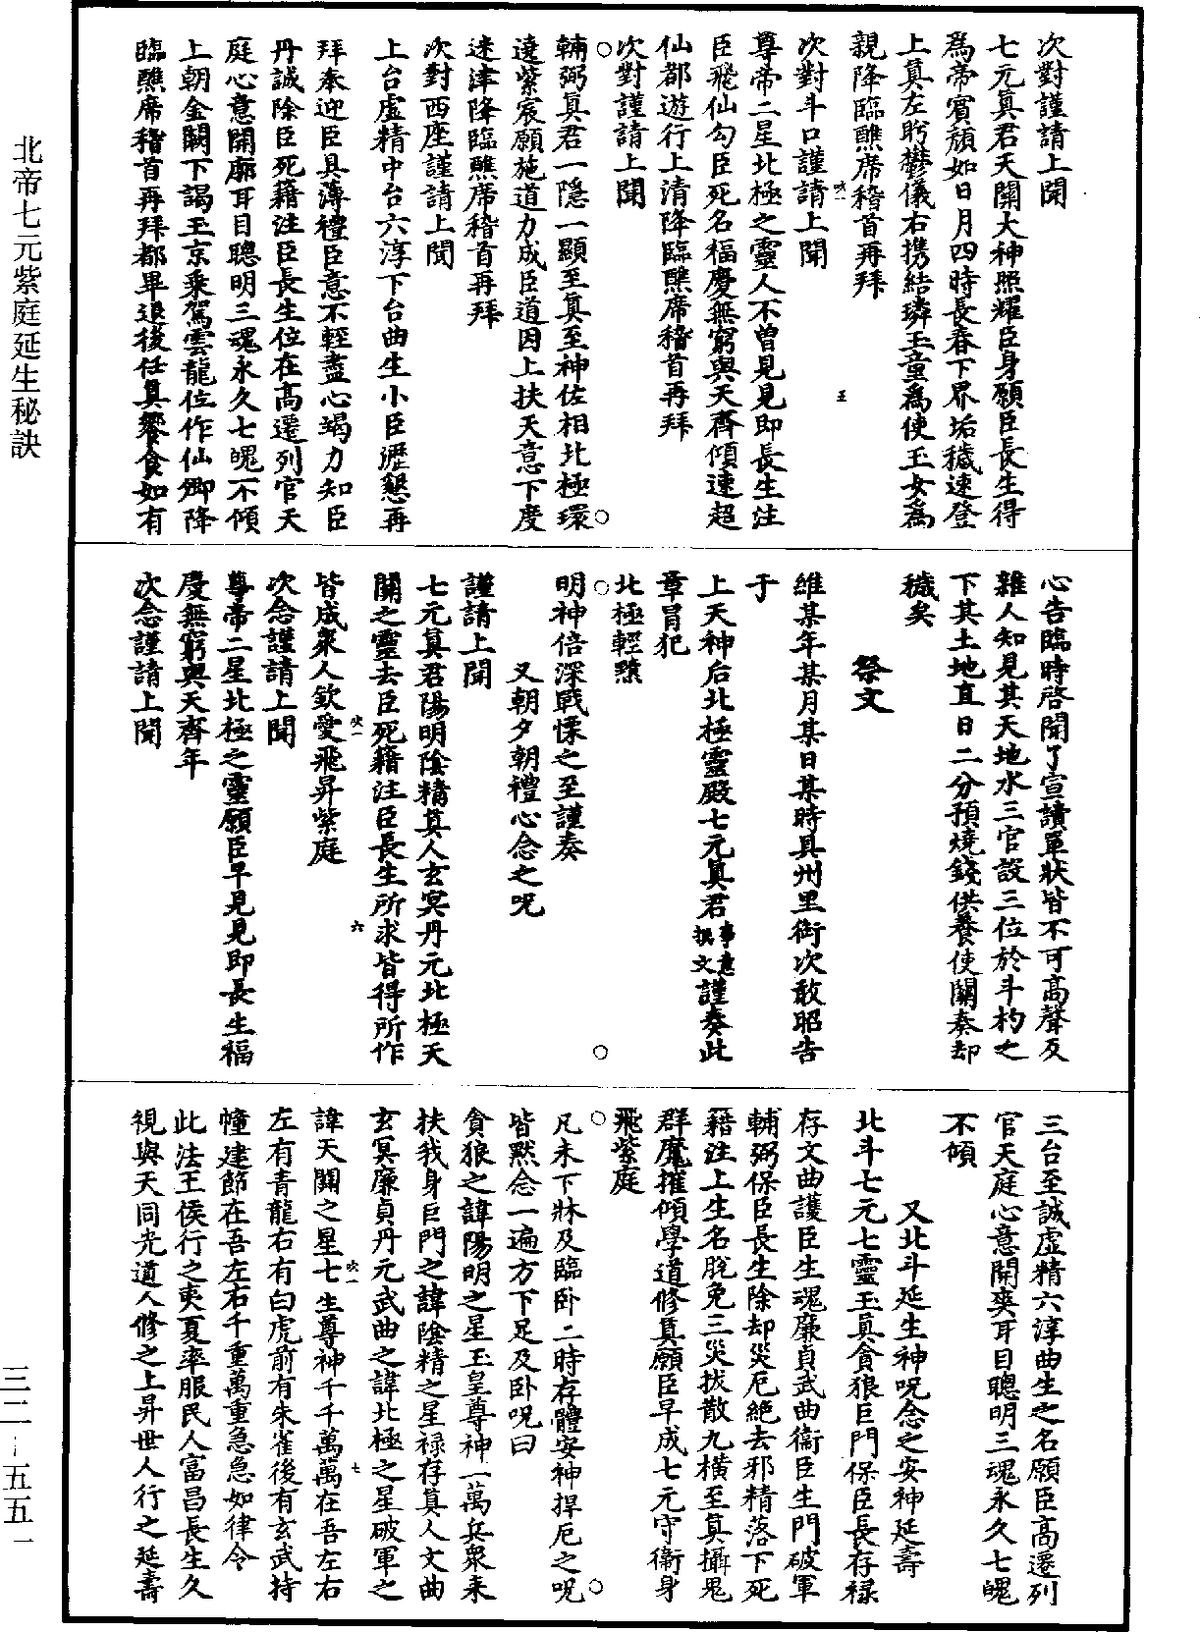 北帝七元紫庭延生秘訣
次對謹請上聞
七元真君天關大神照耀臣身願臣長生得
為帝賓顏如日月四時長春下界垢穢速登
上真左盼鬱儀右携結璘玉童為使玉女為
親降臨醮席稽首再拜
次對斗口謹請上聞
尊帝二星北極之靈人不曾見見即長生注
臣飛仙勾臣死名福慶無窮與天齊傾速超
仙都遊行上清降臨醮席稽首再拜
次對謹請上聞
輔弼真君一隱一顯至真至神佐相北極環
遶紫宸願施道力成臣道因上扶天意下度
迷津降臨醮席稽首再拜
次對西座謹請上聞
上台虛精中台六淳下台曲生小臣瀝懇再
拜奉迎臣具薄禮臣意不輕盡心竭力知臣
丹誠除臣死籍注臣長生位在高遷列官天
庭心意開廓耳目聰明三魂永久七魄不傾
上朝金闕下謁玉京乘駕雲龍位作仙卿降
臨醮席稽首再拜都畢退後任真饗食如有
心告臨時啓聞了宣讀單狀皆不可高聲及
雜人知見其天地水三官設三位於斗杓之
下其土地直日二分預燒錢供養使關奏却
穢矣
祭文
維某年某月某日某時具州里銜次敢昭告
于
上天神后北極靈殿七元真君事意撰文謹奏此
章冒犯
北極輕黷
明神倍深戰慄之至謹奏
又朝夕朝禮心念之呪
謹請上聞
七元真君陽明陰精真人玄冥丹元北極天
關之靈去臣死籍注臣長生所求皆得所作
皆成衆人欽愛飛昇紫庭
次念謹請上聞
尊帝二星北極之靈願臣早見見即長生福
慶無窮與天齊年
次念謹請上聞
三台至誠虛精六淳曲生之名願臣高遷列
官天庭心意開爽耳目聰明三魂永久七魄
不傾
又北斗延生神呪念之安神延壽
北斗七元七靈玉真貪狼巨門保臣長存祿
存文曲護臣生魂廉貞武曲衞臣生門破軍
輔弼保臣長生除却災厄絶去邪精落下死
籍注上生名脫免三災拔散九橫至真攝鬼
群魔摧傾學道修真願臣早成七元守衞身
飛紫庭
凡未下牀及臨卧二時存體安神捍厄之呪
皆默念一遍方下足及卧呪曰
貪狼之諱陽明之星玉皇尊神一萬兵衆來
扶我身巨門之諱陰精之星祿存真人文曲
玄冥廉貞丹元武曲之諱北極之星破軍之
諱天關之星七生尊神千千萬萬在吾左右
左有青龍右有白虎前有朱雀後有玄武持
幢建節在吾左右千重萬重急急如律令
此法王侯行之夷夏率服民人富昌長生久
視與天同光道人修之上昇世人行之延壽
三二－五五一